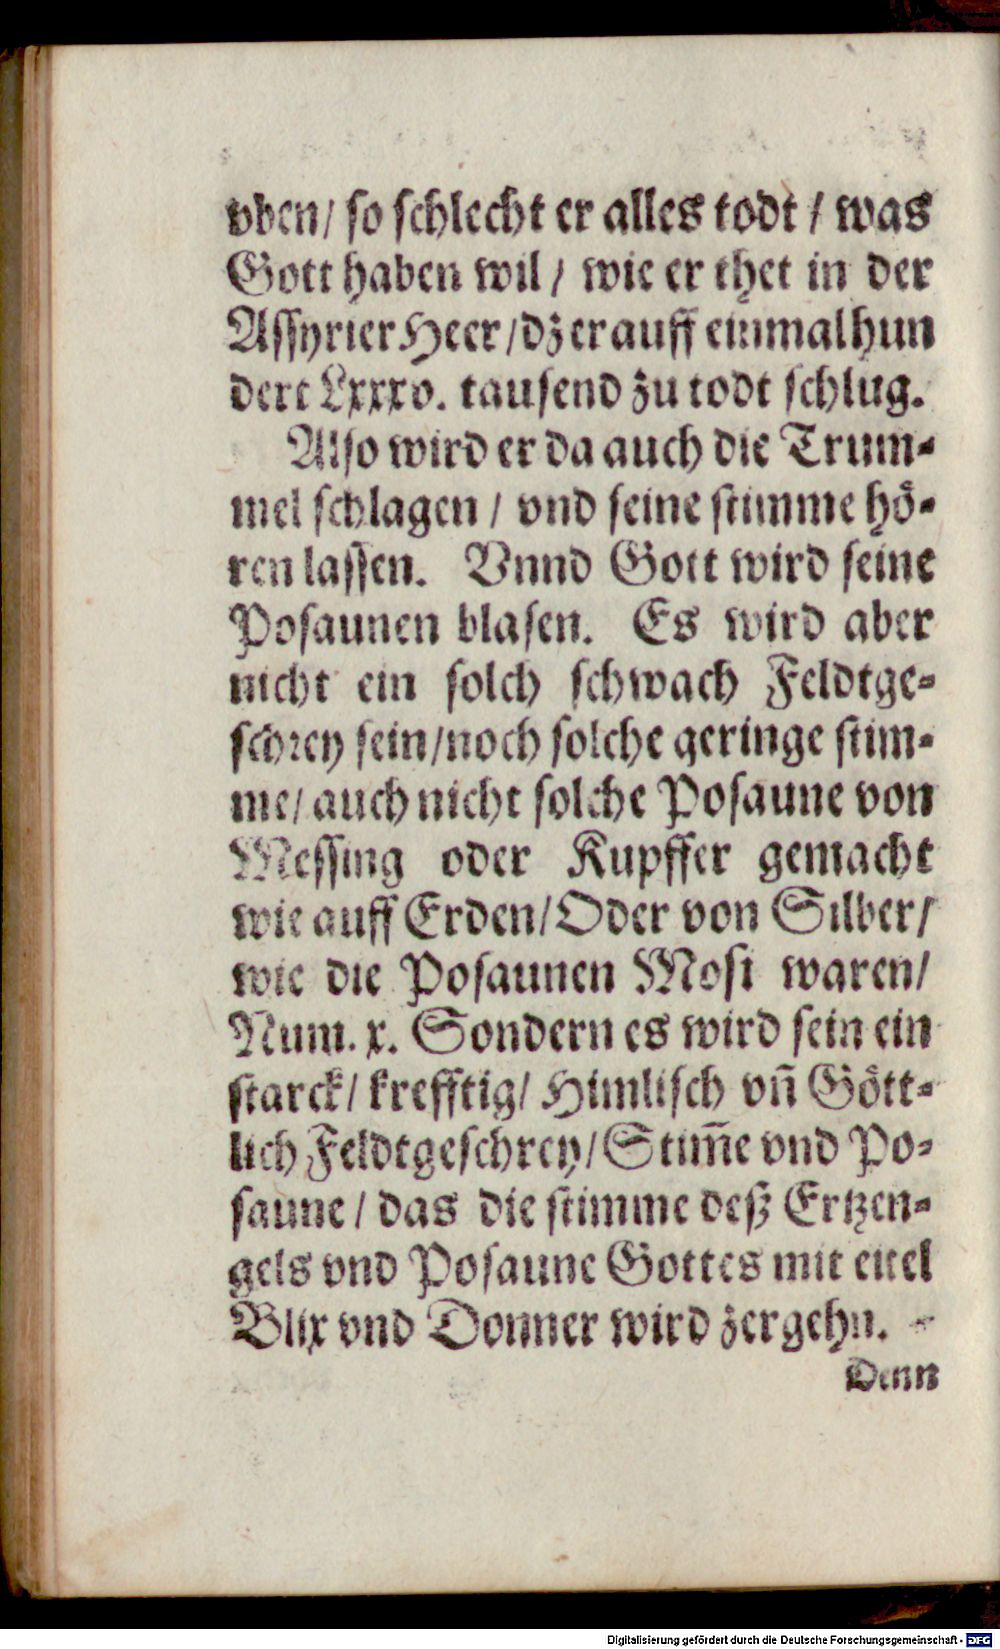 vben/ so schlecht er alles todt / was
Gott haben wil / wie er thet in der
Assyrier Heer/dz er auff einmal hun
dert Lxxxv. tausend zu todt schlug.
Also wird er da auch die Trum-
mel schlagen / vnd seine stimme hö-
ren lassen. Vnnd Gott wird seine
Posaunen blasen. Es wird aber
nicht ein solch schwach Feldtge-
schrey sein/noch solche geringe stim-
me/ auch nicht solche Posaune von
Messing oder Kupffer gemacht
wie auff Erden/Oder von Silber/
wie die Posaunen Mosi waren/
Num. x. Sondern es wird sein ein
starck/ krefftig/ Himlisch vn̄ Gött-
lich Feldtgeschrey/Stim̄e vnd Po-
saune / das die stimme deß Ertzen-
gels vnd Posaune Gottes mit eitel
Blix vnd Donner wird zergehn.
Denn
Digitalisierung gefördert durch die Deutsche Forschungsgemeinschaft - DFG